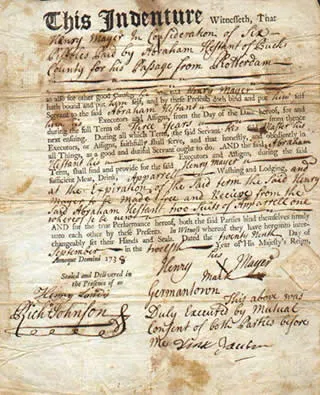 This Indenture Witnesseth, That
Henry Mayer In Consideration of Six
Paid by Abraham Hestant of Bucks
County for his Passage from Rotterdam
as also for other good Henry Mayer
hath bound and put himself, and by these Presents doth bind and put himself
Servant to the said Abraham Hestant
Executors and Assigns, from the Day of the Date hereof, for and
during the full Term of Three Years from thence
next ensuing. During all which Term, the said Servant
Executors, or Assigns, faithfully shall serve, and that honestly, and obediently in
all Things, as a good and dutiful Servant ought to do. AND the said Abraham
Hestant his Executors and Assigns, during the said
Term, shall find and provide for the said Henry Mayer
sufficient Meat, Drink, Apparel, Washing and Lodging, and
at the Expiration of the said term the said Henry
Mayer to be made free and Receive from the
Said Abraham Hestant two Suits of Apparrell one
whereof to be new
AND for the true Performance hereof, both the said Parties bind themselves firmly
unto each other by these Presents. In Witness whereof they have hereunto inter-
changeably set their Hands and Seals. Dated the
September in the twelfth Year of His Majesty's Reign,
Annoque Domini 1738
Sealed and Delivered
in the Presence of us
Henry
his
Mark
Mayer
Rich Johnson
Germantown
This above was
Duly Executed by Mutual
Consent of both Parties before
me